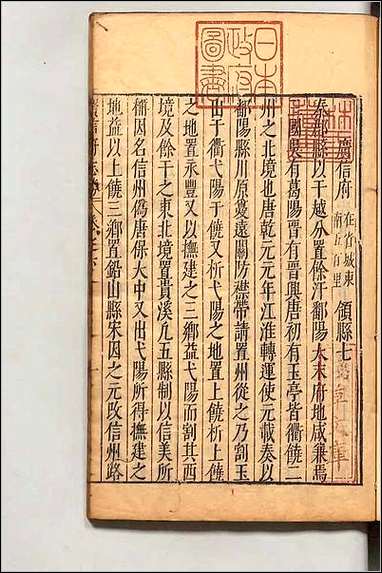 日本
政府
圖書
廣信府
在省城東
南五百里
領縣七
秦郡縣以干越分置餘汗鄱陽大末府地咸𠔥焉
國吳有葛陽晉有晉興唐初有玉亭皆衢饒二
州之北境也唐乾元元年江淮轉運使元載奏以
鄱陽縣川原夐遠關防襟帶請置州從之乃割玉
山于衢弋陽于饒又析弋陽之地置上饒析上饒
之地置永豐又以撫建之三鄉益弋陽而割其西
境及餘干之東北境置貴溪凡五縣制以信美所
稱因名信州僞唐保大中又出弋陽所得撫建之
地益以上饒三鄉置鉛山縣宋因之元改信州路